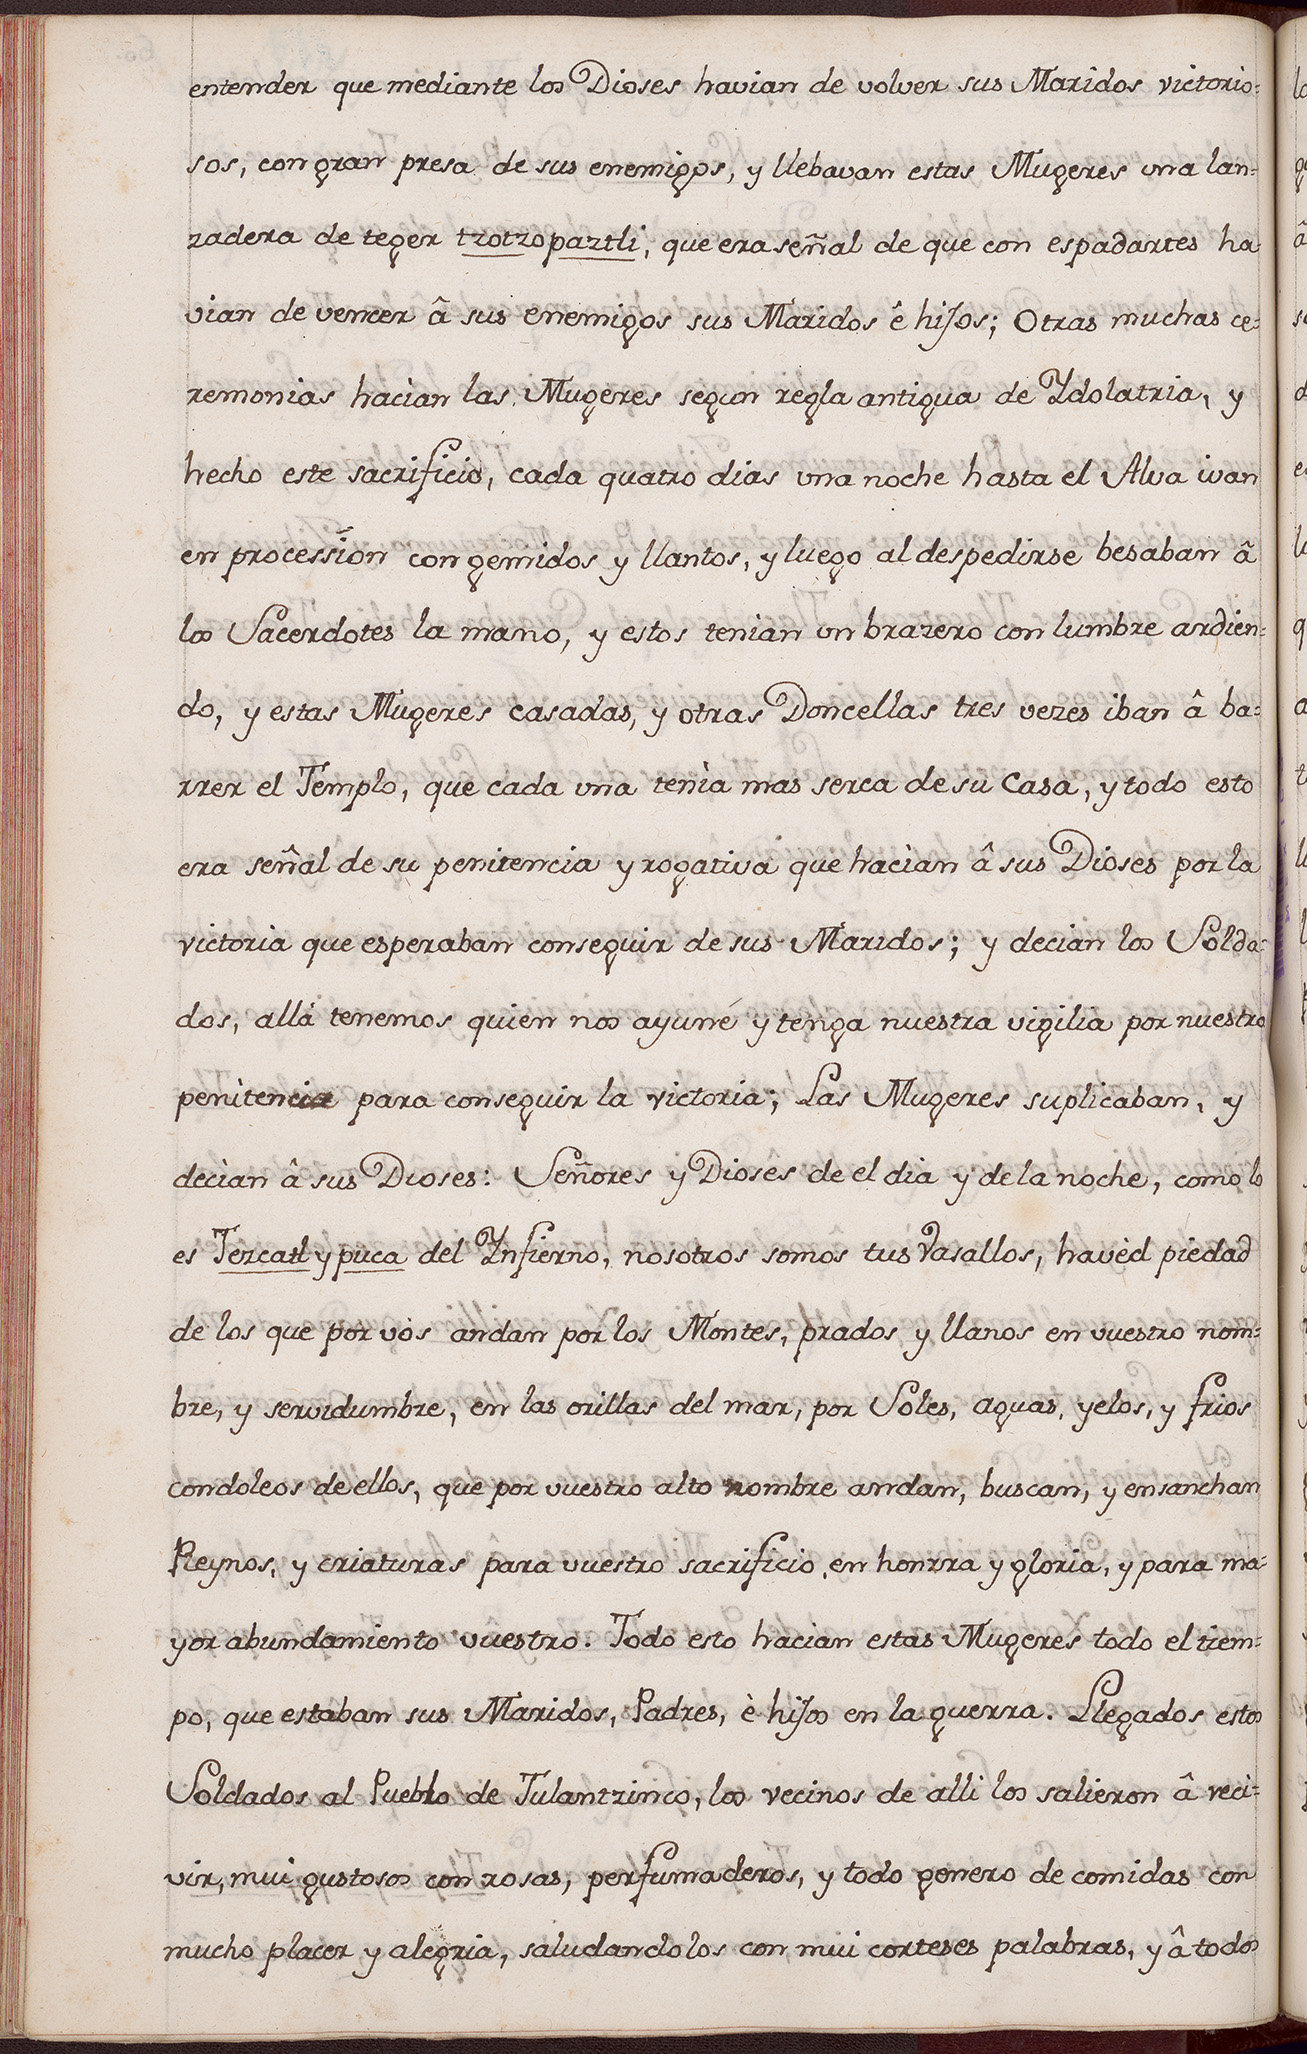 entender que mediante los Dioses havian de volver sus Maridos victorio=
sos, con gran presa de sus enemigos, y llebavan estas Mugeres una lan=
zadera de teger tzotzopaztli, que era señal de que con espadartes ha
vian de vencer â sus enemigos sus Maridos ê hijos; Otras muchas ce=
remonias hacian las Mugeres segun regla antigua de Ydolatria, y
hecho este sacrificio, cada quatro dias una noche hasta el Alva ivan
en procession con gemidos y llantos, y luego al despedirse besaban â
los Sacerdotes la mano, y estos tenian un brazero con lumbre ardien=
do, y estas Mugeres casadas, y otras Doncellas tres vezes iban â ba=
rrer el Templo, que cada una tenia mas serca de su Casa, y todo esto
era señal de su penitencia y rogativa que hacian â sus Dioses por la
victoria que esperaban conseguir de sus Maridos; y decian los Solda=
dos, allá tenemos quien nos ayune y tenga nuestra vigilia por nuestro
penitencia para conseguir la victoria; Las Mugeres suplicaban, y
decian â sus Dioses: Señores y Dioses de el dia y de la noche, como lo
es Tezcatlypuca del Ynfierno, nosotros somos tus Vasallos, havèd piedad
de los que por vòs andan por los Montes, prados y llanos en vuestro nom=
bre, y servidumbre, en las orillas del mar, por Soles, aguas, yelos, y frios
condoleos de ellos, que por vuestro alto nombre andan, buscan, y ensanchan
Reynos, y criaturas para vuestro sacrificio, en honrra y gloria, y para ma=
yor abundamiento vuestro. Todo esto hacian estas Mugeres todo el tiem=
po, que estaban sus Maridos, Padres, è hijos en la guerra. Llegados estos
Soldados al Pueblo de Tulantzinco, los vecinos de alli los salieron â reci=
vir, mui gustosos con rosas, perfumaderos, y todo genero de comidas con
mucho placer y alegria, saludandolos con mui corteses palabras, y â todos